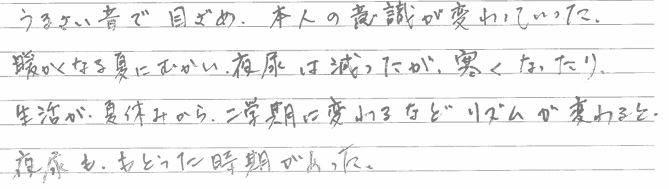 うるさい音で目ざめ、本人の意識が変わっていった。
暖かくなる夏にむかい、夜尿は減ったが、寒くなったり、
生活が、夏休みから、二学期に変わるなどリズムが変わると、
夜尿も、もどった時期があった。